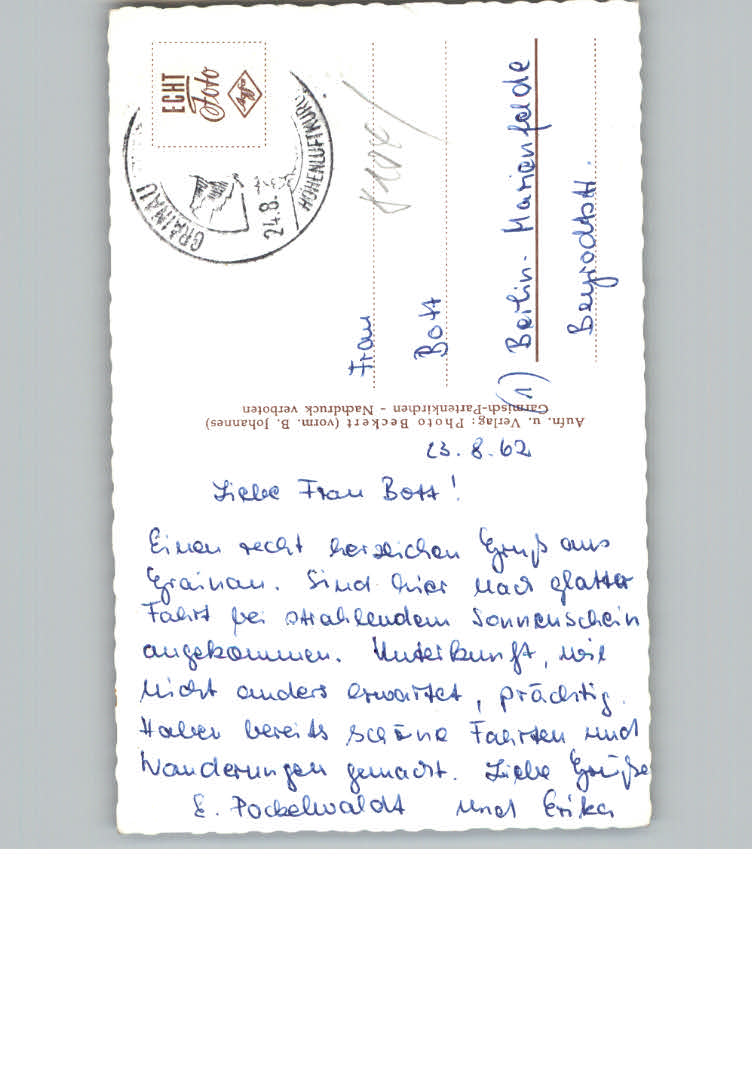 ECHT
Foto
Agfa
GRAINAU
24.8.
HÖHENLUFTKUR
Frau
Bott
(1) Berlin-Marienfelde
Beyrodtstr.
Aufn. u. Verlag: Photo Beckert (vorm. B. Johannes)
Garmisch-Partenkirchen - Nachdruck verboten
23.8.62
Liebe Frau Bott!
Einen recht herzlichen Gruß aus
Grainau. Sind hier nach glatter
Fahrt bei strahlendem Sonnenschein
angekommen. Unterkunft, wie
nicht anders erwartet, prächtig.
Haben bereits schöne Fahrten und
Wanderungen gemacht. Liebe Grüße
E. Pockelwaldt und Erika